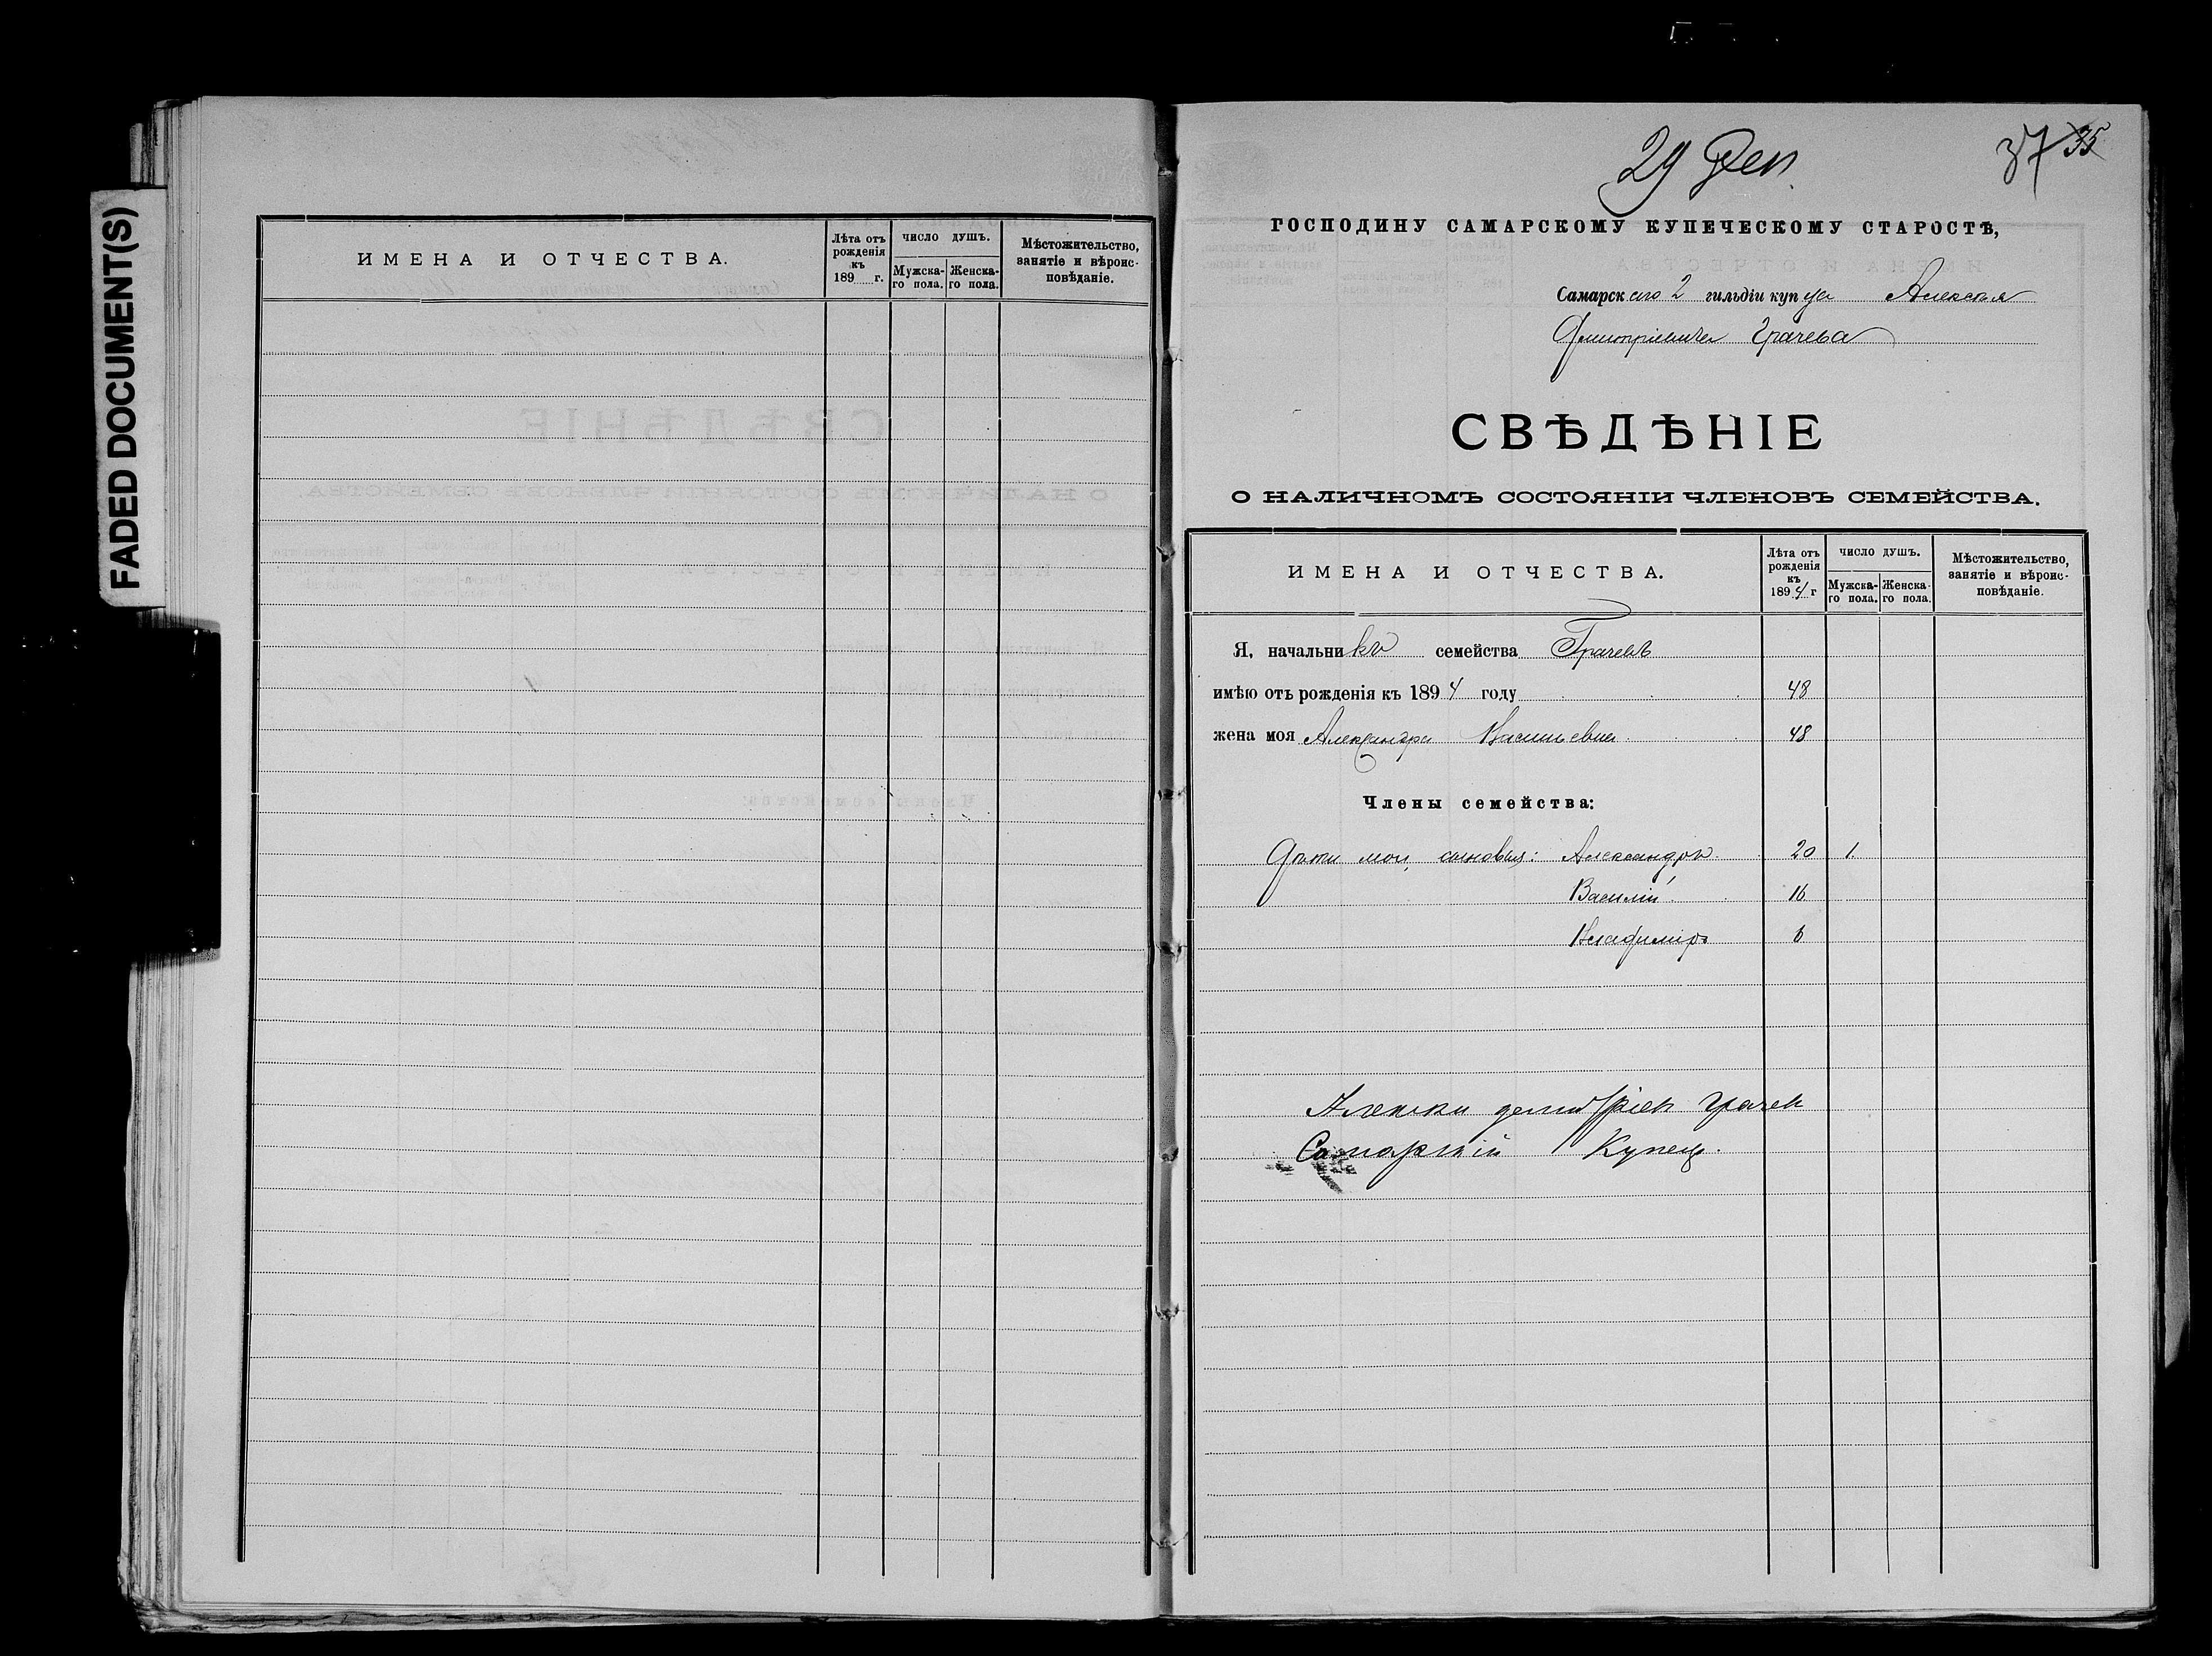 FADED DOCUMENT(S)
ИМЕНА И ОТЧЕСТВА.
Лѣта отъ рожденія къ 189 г.
ЧИСЛО ДУШЪ.
Мужска-го пола.
Женска-го пола.
Мѣстожительство, занятіе и вѣроис-повѣданіе.
29 Дек
37 35
ГОСПОДИНУ САМАРСКОМУ КУПЕЧЕСКОМУ СТАРОСТѢ,
Самарскаго 2 гильдіи купца Алексея
Дмитріевича Грачева
СВѢДѢНІЕ
О НАЛИЧНОМЪ СОСТОЯНІИ ЧЛЕНОВЪ СЕМЕЙСТВА.
ИМЕНА И ОТЧЕСТВА.
Лѣта отъ рожденія къ 1894 г
ЧИСЛО ДУШЪ.
Мужска-го пола.
Женска-го пола.
Мѣстожительство, занятіе и вѣроис-повѣданіе.
Я, начальникъ семейства Грачевъ
имѣю отъ рожденія къ 1894 году 48
жена моя Александра Васильевна 48
Члены семейства:
Дѣти мои, сыновья: Александръ 20 1.
Василій 16
Владиміръ 6
Алекси Грачев
Самарскій Купец.